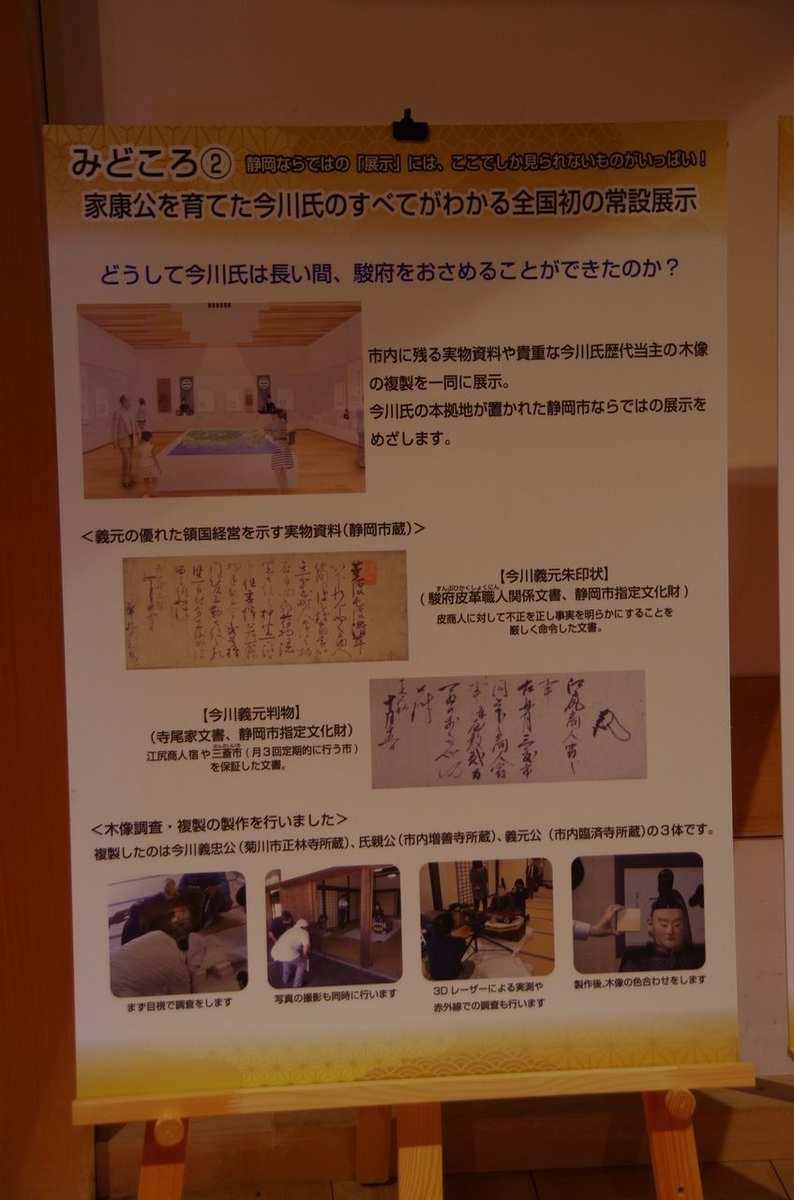 みどころ② 静岡ならではの「展示」には、ここでしか見られないものがいっぱい！
家康公を育てた今川氏のすべてがわかる全国初の常設展示
どうして今川氏は長い間、駿府をおさめることができたのか？
市内に残る実物資料や貴重な今川氏歴代当主の木像
の複製を一同に展示。
今川氏の本拠地が置かれた静岡市ならではの展示を
めざします。
＜義元の優れた領国経営を示す実物資料（静岡市蔵）＞
【今川義元朱印状】
すんぷひかくしょくにん
（駿府皮革職人関係文書、静岡市指定文化財）
皮商人に対して不正を正し事実を明らかにすることを
厳しく命令した文書。
【今川義元判物】
（寺尾家文書、静岡市指定文化財）
江尻商人宿や三斎市（月３回定期的に行う市）
を保証した文書。
＜木像調査・複製の製作を行いました＞
複製したのは今川義忠公（菊川市正林寺所蔵）、氏親公（市内増善寺所蔵）、義元公（市内臨済寺所蔵）の３体です。
まず目視で調査をします
写真の撮影も同時に行います
3Dレーザーによる実測や
赤外線での調査も行います
製作後、木像の色合わせをします